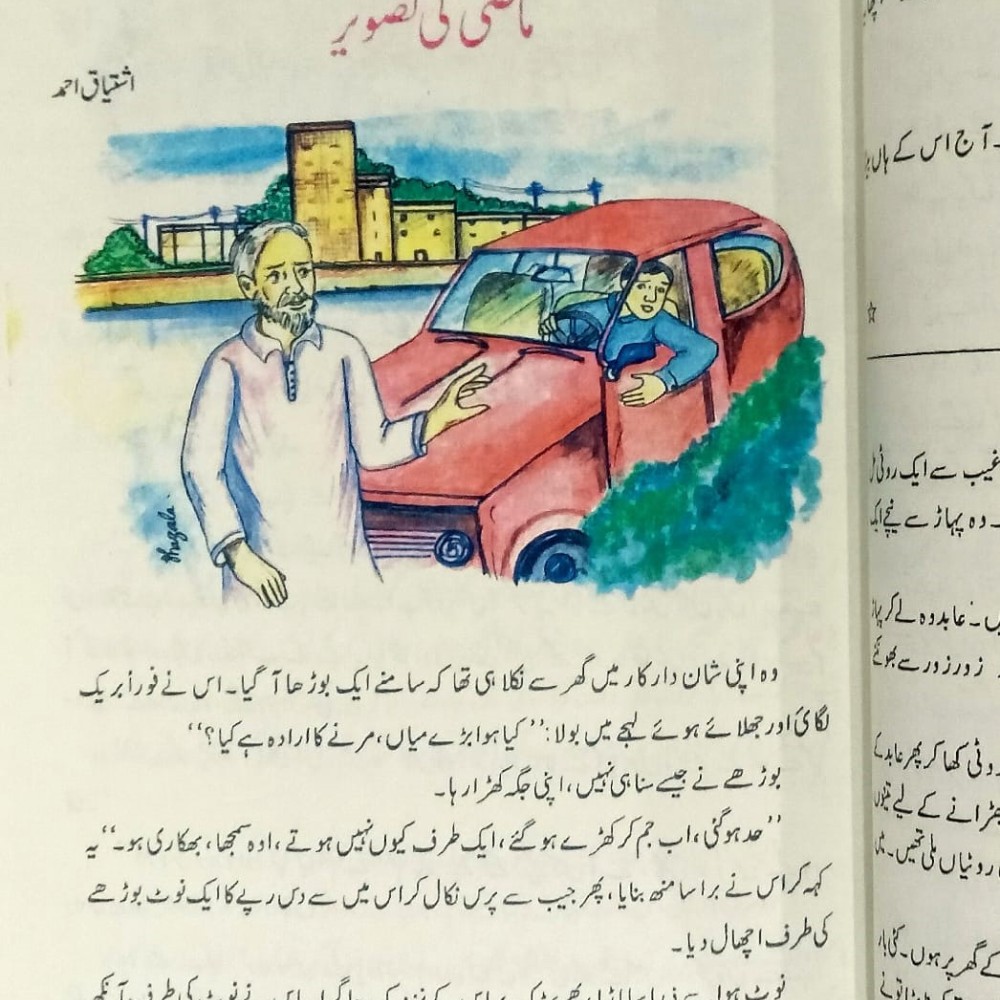 ماضی کی تصویر
اشتیاق احمد
Hugala
وہ اپنی شان دار کار میں گھر سے نکلا ہی تھا کہ سامنے ایک بوڑھا آ گیا۔ اس نے فوراً بریک
لگائی اور جھلائے ہوئے لہجے میں بولا: ’’کیا ہوا بڑے میاں، مرنے کا ارادہ ہے کیا؟‘‘
بوڑھے نے جیسے سنا ہی نہیں، اپنی جگہ کھڑا رہا۔
’’حد ہوگئی، اب جم کر کھڑے ہو گئے، ایک طرف کیوں نہیں ہوتے، اوہ سمجھا، بھکاری ہو۔‘‘ یہ
کہہ کر اس نے برا سا منھ بنایا، پھر جیب سے پرس نکال کر اس میں سے دس رپے کا ایک نوٹ بوڑھے
کی طرف اچھال دیا۔
نوٹ ہوا سے
۔ آج اس کے ہاں
غیب سے ایک روٹی
۔ وہ پہاڑ سے نیچے ایک
۔ عابد وہ لے کر
زور زور سے بھونکنے
روٹی کھا کر پھر عابد کے
چھڑانے کے لیے تینوں
روٹیاں ملی تھیں۔ میں
کے گھر پر ہوں۔ کئی بار